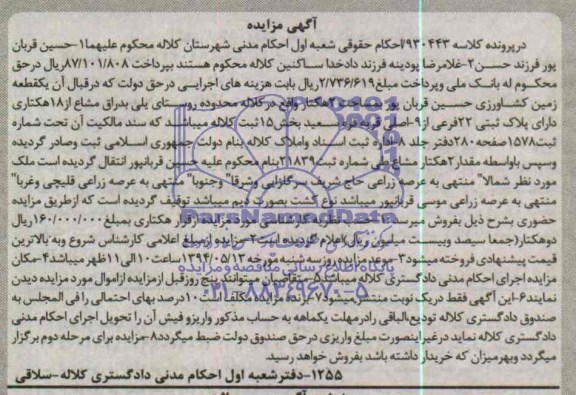 آگهی مزایده
درپرونده کلاسه ۹۳۰۴۴۳/احکام حقوقی شعبه اول احکام مدنی شهرستان کلاله محکوم علیهما۱-حسین قربان
پور فرزند حسن۲-غلامرضا پودینه فرزند دادخدا ساکنین کلاله محکوم هستند بپرداخت ۸۷/۱۰۱/۸۰۸ریال درحق
محکوم له بانک ملی وپرداخت مبلغ۲/۷۳۶/۶۱۹ریال بابت هزینه های اجرایی درحق دولت که درقبال آن یکقطعه
زمین کشاورزی حسین قربان پور به مساحت۲هکتار واقع درکلاله محدوده روستای یلی بدراق مشاع از۱۸هکتاری
دارای پلاک ثبتی ۲۲فرعی از۹-اصلی بخش۱۵ثبت کلاله میباشد که سند مالکیت آن تحت شماره
ثبت۱۵۷۸صفحه۲۸۰دفتر جلد ۸-اداره ثبت اسناد واملاک کلاله بنام دولت جمهوری اسلامی ثبت وصادر گردیده
وسپس باواسطه مقدار۲هکتار مشاع طی شماره ثبت۲۱۸۳۹بنام محکوم علیه حسین قربانپور انتقال گردیده است ملک
مورد نظر شمالا" منتهی به عرصه زراعی حاج شریف سرگلزایی وشرقا" وجنوبا" منتهی به عرصه زراعی قلیچی وغربا"
منتهی به عرصه زراعی موسی قربانپور میباشد نوع کشت بصورت دیم میباشد توقیف گردیده است که ازطریق مزایده
حضوری بشرح ذیل بفروش میرسد۱-حسب نظریه کارشناسی مورد مزایده ازقرار هکتاری بمبلغ۱۶۰/۰۰۰/۰۰۰ریال
دوهکتار(جمعا سیصد وبیست میلیون ریال)اعلام گردیده است۲-مزایده ازمبلغ اعلامی کارشناس شروع وبه بالاترین
قیمت پیشنهادی فروخته میشود۳-موعد مزایده روزسه شنبه مورخه ۱۳۹۴/۰۵/۱۳ساعت۱۰الی۱۱ظهر میباشد۴-مکان
مزایده اجرای احکام مدنی دادگستری کلاله میباشد۵-متقاضیان میتوانند پنج روزقبل ازمزایده ازاموال مورد مزایده دیدن
نمایند۶-این آگهی فقط دریک نوبت منتشر میشود۷-برنده مزایده مکلف است۱۰درصد بهای احتمالی را فی المجلس به
صندوق دادگستری کلاله تودیع،الباقی رادرمهلت یکماهه به حساب مذکور واریزو فیش آن را تحویل اجرای احکام مدنی
دادگستری کلاله نماید درغیراینصورت مبلغ واریزی درحق صندوق دولت ضبط میگردد۸-مزایده برای مرحله دوم برگزار
میگردد وبهرمیزان که خریدار داشته باشد بفروش خواهد رسید.
۱۲۵۵-دفترشعبه اول احکام مدنی دادگستری کلاله-سلاقی
ParsNamadData
پایگاه اطلاع رسانی مناقصه و مزایده
۰۲۱-۸۸۳۴۹۶۷۰-۵